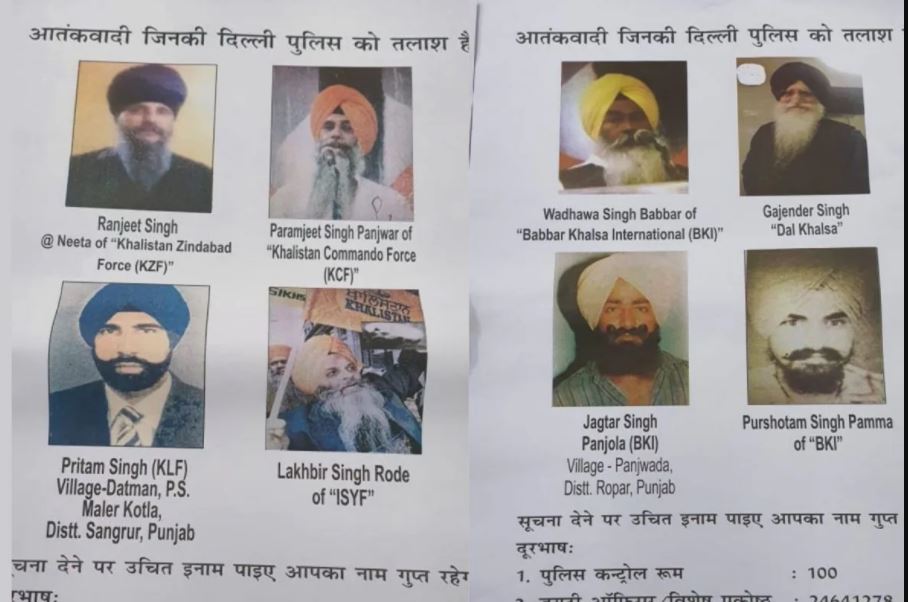 आतंकवादी जिनकी दिल्ली पुलिस को तलाश है
Ranjeet Singh
@ Neeta of “Khalistan Zindabad
Force (KZF)”
Paramjeet Singh Panjwar of
“Khalistan Commando Force
(KCF)”
SIKHS
KHALISTAN
Pritam Singh (KLF)
Village-Datman, P.S.
Maler Kotla,
Distt. Sangrur, Punjab
Lakhbir Singh Rode
of “ISYF”
चना देने पर उचित इनाम पाइए आपका नाम गुप्त रहेग
रभाष:
आतंकवादी जिनकी दिल्ली पुलिस को तलाश
Wadhawa Singh Babbar of
“Babbar Khalsa International (BKI)”
Gajender Singh
“Dal Khalsa”
Jagtar Singh
Panjola (BKI)
Village - Panjwada,
Distt. Ropar, Punjab
Purshotam Singh Pamma
of “BKI”
सूचना देने पर उचित इनाम पाइए आपका नाम गुप्त
दूरभाष:
1. पुलिस कन्ट्रोल रूम : 100
: 24641278